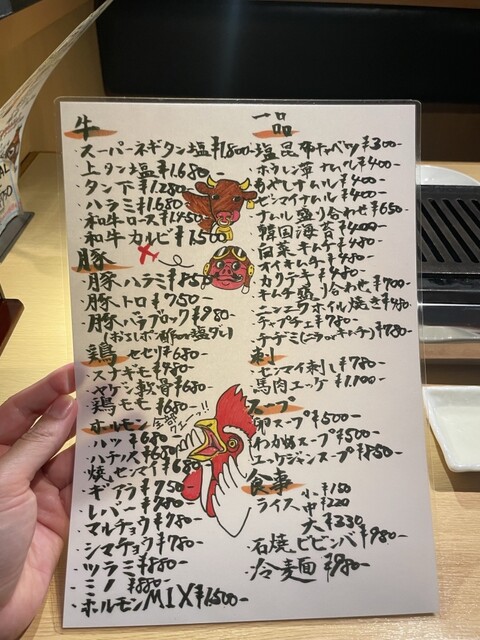 牛
スーパーネギタン塩¥1,800-
上タン塩¥1,680-
タン下¥1,280-
ハラミ¥1,680-
和牛ロース¥1,450-
和牛カルビ¥1,500-
豚
豚ハラミ¥850-
豚トロ¥750-
豚バラブロック¥980-
(おろしポン酢or塩ダレ)
鶏
セセリ¥680-
スナギモ¥480-
ヤゲン軟骨¥680-
鶏モモ¥680-
ホルモン
ハツ¥680-
ハチノス¥680-
焼センマイ¥680-
ギアラ¥750-
レバー¥780-
マルチョウ¥780-
シマチョウ¥780-
ツラミ¥880-
ミノ¥880-
ホルモンMIX¥1,500-
一品
塩昆布キャベツ¥300-
ホウレン草ナムル¥400-
もやしナムル¥400-
ゼンマイナムル¥400-
ナムル盛り合わせ¥650-
韓国海苔¥400-
白菜キムチ¥480-
オイキムチ¥480-
カクテキ¥480-
キムチ盛り合わせ¥700-
ニンニクホイル焼き¥480-
チャプチェ¥780-
チヂミ(ニラorキムチ)¥780-
刺
センマイ刺し¥780-
馬肉ユッケ¥1,100-
スープ
卵スープ¥500-
わかめスープ¥500-
ユッケジャンスープ¥850-
食事
ライス 小¥150
中¥220
大¥330
石焼ビビンバ¥980-
冷麺¥980-